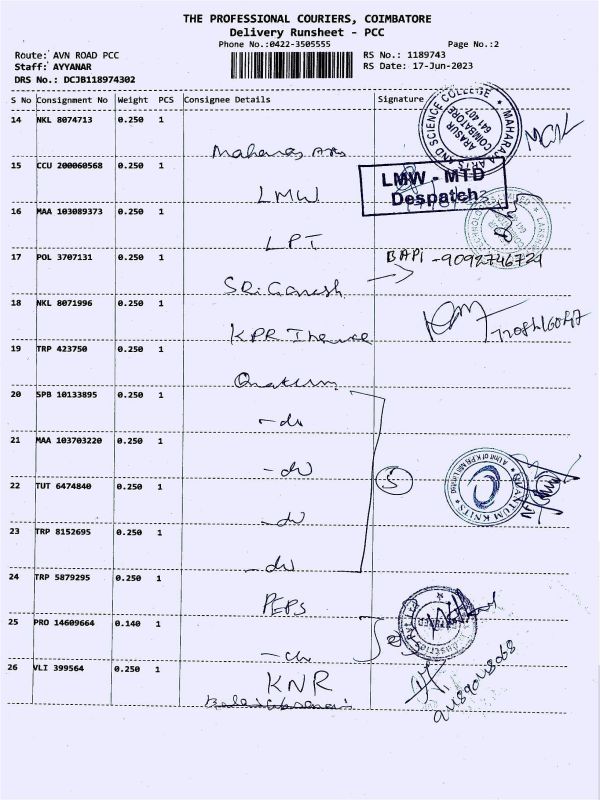 THE PROFESSIONAL COURIERS, COIMBATORE
Delivery Runsheet - PCC
Phone No.:0422-3505555 Page No.:2
Route: AVN ROAD PCC RS No.: 1189743
Staff: AYYANAR RS Date: 17-Jun-2023
DRS No.: DCJB118974302
S No Consignment No Weight PCS Consignee Details Signature
14 NKL 8074713 0.250 1
15 CCU 200060568 0.250 1
LMW
LMW - MTD
Despatch
16 MAA 103089373 0.250 1
LPT
17 POL 3707131 0.250 1
BAPi -9092746724
Sri Ganesh
18 NKL 8071996 0.250 1
KPR
19 TRP 423750 0.250 1
Quantum
20 SPB 10133895 0.250 1
-do
21 MAA 103703220 0.250 1
-do
5
22 TUT 6474840 0.250 1
-do
QUANTUM KNITS
23 TRP 8152695 0.250 1
-do
24 TRP 5879295 0.250 1
PEPS
25 PRO 14609664 0.140 1
-do
26 VLI 399564 0.250 1
KNR
MAHARAJA ARTS AND SCIENCE COLLEGE
ARASUR
COIMBATORE
641 407